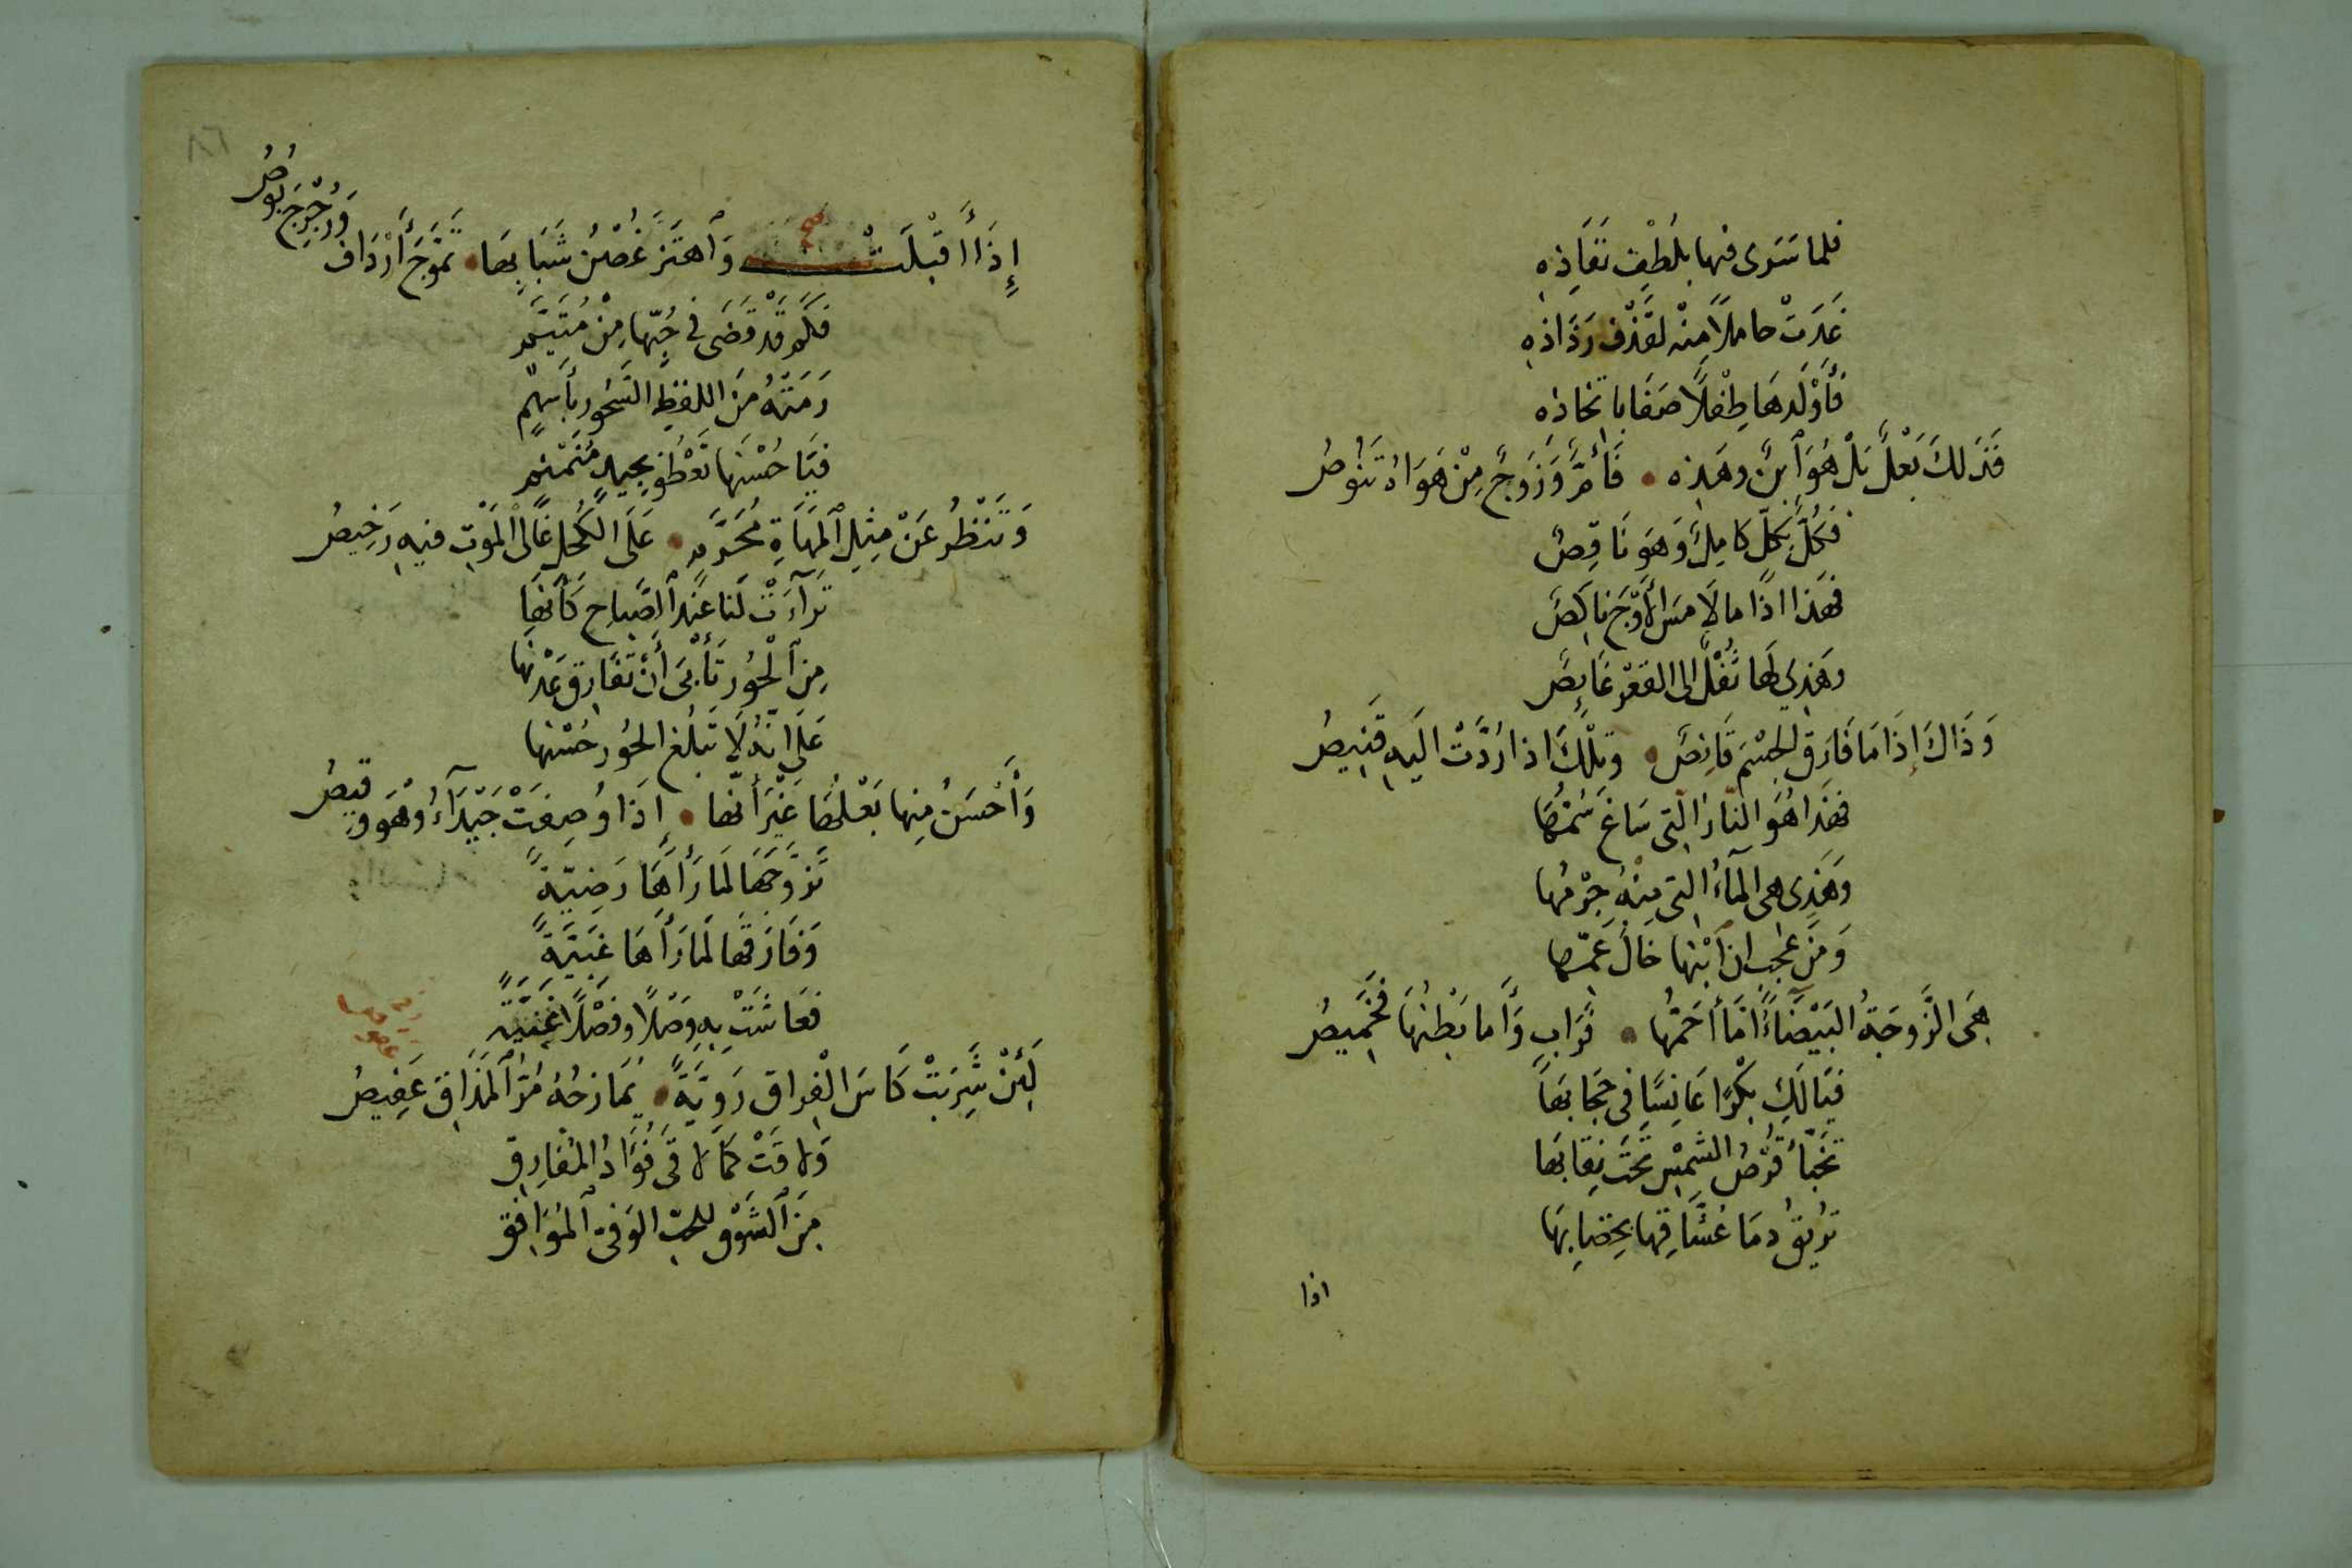 فلما سَرَى فيها بلُطْفِ نَفَاذِهِ
غَدَتْ حاملاً مِنْه لقَذْفِ رَذَاذِهِ
فَأَوْلَدهَا طِفْلاً صَفَا باتخاذه
فَذَلكَ بَعْلٌ بَلْ هُوَ ٱبنٌ وهَذِه • فَأُمٌّ وَزَوجٌ مِنْ هَوَاهُ تَنُوصُ
فَكُلٌّ بِكُلٍّ كامِلٌ وَهَوَ نَاقِصٌ
فهَذا اذا ما لَامَسَ الأَوْجَ ناكِصٌ
وهَذِي لَها ثُقْلٌ الى القعْرِ غَايِصٌ
وَذَاكَ إِذَا مَا فَارَقَ الجِسْمَ قَانِصٌ • وتلْكَ اذا رُدَّتْ اليَهِ قَنِيصُ
فهَذَا هُوَ النّارُ التِي سَاغَ سُمُّهَا
وَهَذِى هى المآءُ التِى مِنْهُ جِرْمُها
وَمِنْ عَجَبٍ ان ٱبْنَها خَالُ عَمِّها
هِىَ الزَّوجَةُ البَيْضَآءُ امَّا أَحَمُّها • فَرَابٍ وَأَما بَطْنُهَا فَخَمِيصُ
فيَا لَكِ بِكْرًا عَانِسًا فى حِجَابِهَا
تَخَبَّأَ قُرْصُ الشمْسِ تحْتَ نِقَابِهَا
تُرِيقُ دِمَا عُشَّاقِها بِخِضابِهَا
اذا
إِذَا أَقْبَلَتْ وَٱهتَزَّ غُصْنُ شَبَابِهَا • تَمَوَّجَ أَرْدَافٌ وَرَجْرَجَ بُوصُ
فَكَم قَدْ قَضَى فى حُبّها مِنْ مُتَيَّم
رَمَتْهُ مِنَ اللفظِ السَّحُورِ بأَسْهُمٍ
فيَا حُسْنَها تَعْطُو بِجِيدٍ مُنَمْنَم
وَتَنْظُرُ عَنْ مِثْلِ ٱلمَهَاةِ مُحَرَّمٍ • عَلَى الكُحْلِ غَالى ٱلمَوْتِ فيهِ رَخِيصُ
تَرآءَتْ لَنا عنْدَ ٱلصَّباحِ كَأَنّهَا
مِنَ ٱلْحُورِ تَأْبَى أَنْ تفَارِقَ عَدْنَها
عَلَى انّهُ لَا تَبْلُغ الحُورُ حُسْنها
وَأَحْسَنُ مِنها بَعْلُهَا غَيْرَ أَنّها • إِذَا وُصِفَتْ جَيْدَآءُ وَهْوَ وقيصُ
تَزوَّجَهَا لمَا رَأَهَا رَضِيّةً
وَفَارَقَها لَمَا رَأَهَا غَبِيَّةً
فعَاشَتْ بِهِ وَصْلاً وفَصْلاً غَنِيَّة
لَئِنْ شَرِبَتْ كَاسَ الْفِراقِ رَوِيَّةً • يُمَازحُهُ مُرُّ ٱلمَذَاقِ عَفِيصُ
وَلاقَتْ كما لاقَى فُؤَادُ المُفَارِقِ
مِنَ ٱلشَوْقِ للحِبّ الوَفىّ ٱلمُوَافِقِ